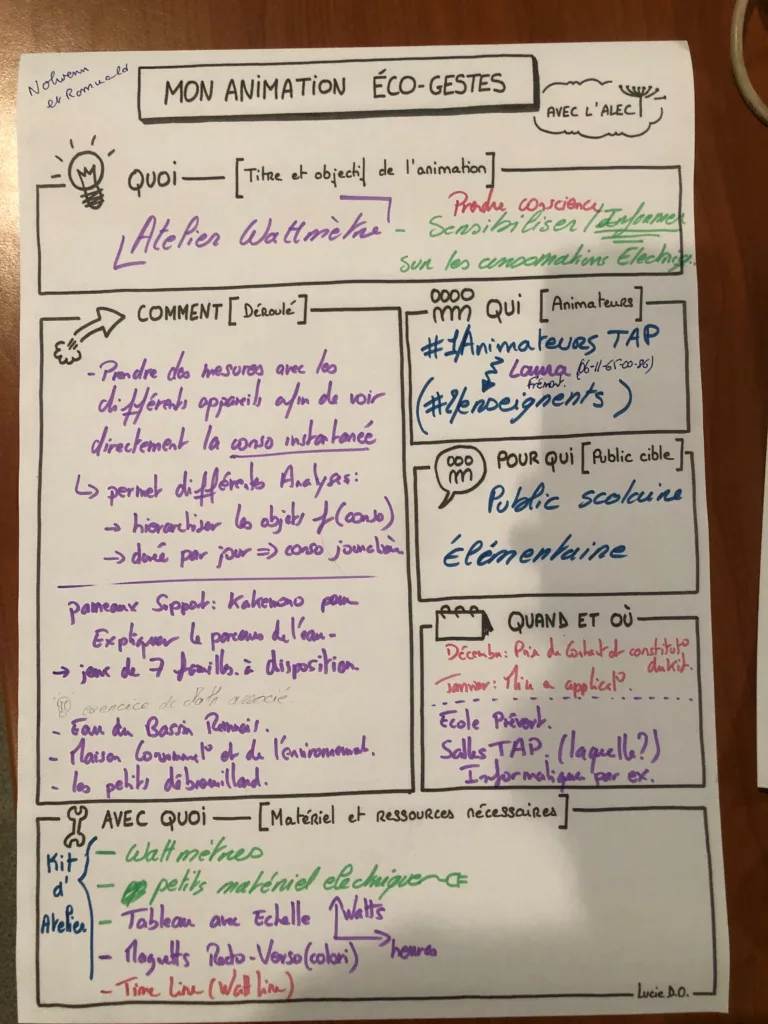 Nolwenn
et Romuald
MON ANIMATION ÉCO-GESTES
AVEC L'ALEC
QUOI [Titre et objectif de l'animation]
Atelier Wattmètre
Prendre conscience
- Sensibiliser / Informer
Sur les consomations Electriq.
COMMENT [Déroulé]
- Prendre des mesures avec les
différents appareils afin de voir
directement la conso instantanée
↳ permet différentes Analyses:
→ hierarchiser les objets f(conso)
→ durée par jour => conso journalière
panneaux Support: Kakemono pour
Expliquer le parcours de l'eau-
→ jeux de 7 familles à disposition
exercice de Math associé
- Eau du Bassin Rennais.
- Maison Consommat° et de l'environnement.
- les petits débrouillard.
QUI [Animateurs]
#1/Animateurs TAP
Laura (06-11-65-00-86)
Frémont.
(#2/enseignents)
POUR QUI [Public cible]
Public scolaire
Élémentaire
QUAND ET OÙ
Décembre: Prise de Contact et constitut°
du Kit.
Janvier: Mise en applicat°.
Ecole Prévert.
Salles TAP. (laquelle?)
Informatique par ex.
AVEC QUOI [Matériel et ressources nécessaires]
Kit
d'
Atelier
- Wattmètres
- petits matériel electrique
- Tableau avec Echelle Watts
heures
- Maquetts Recto-Verso (colori)
- Time Line (Watt line)
Lucie D.O.